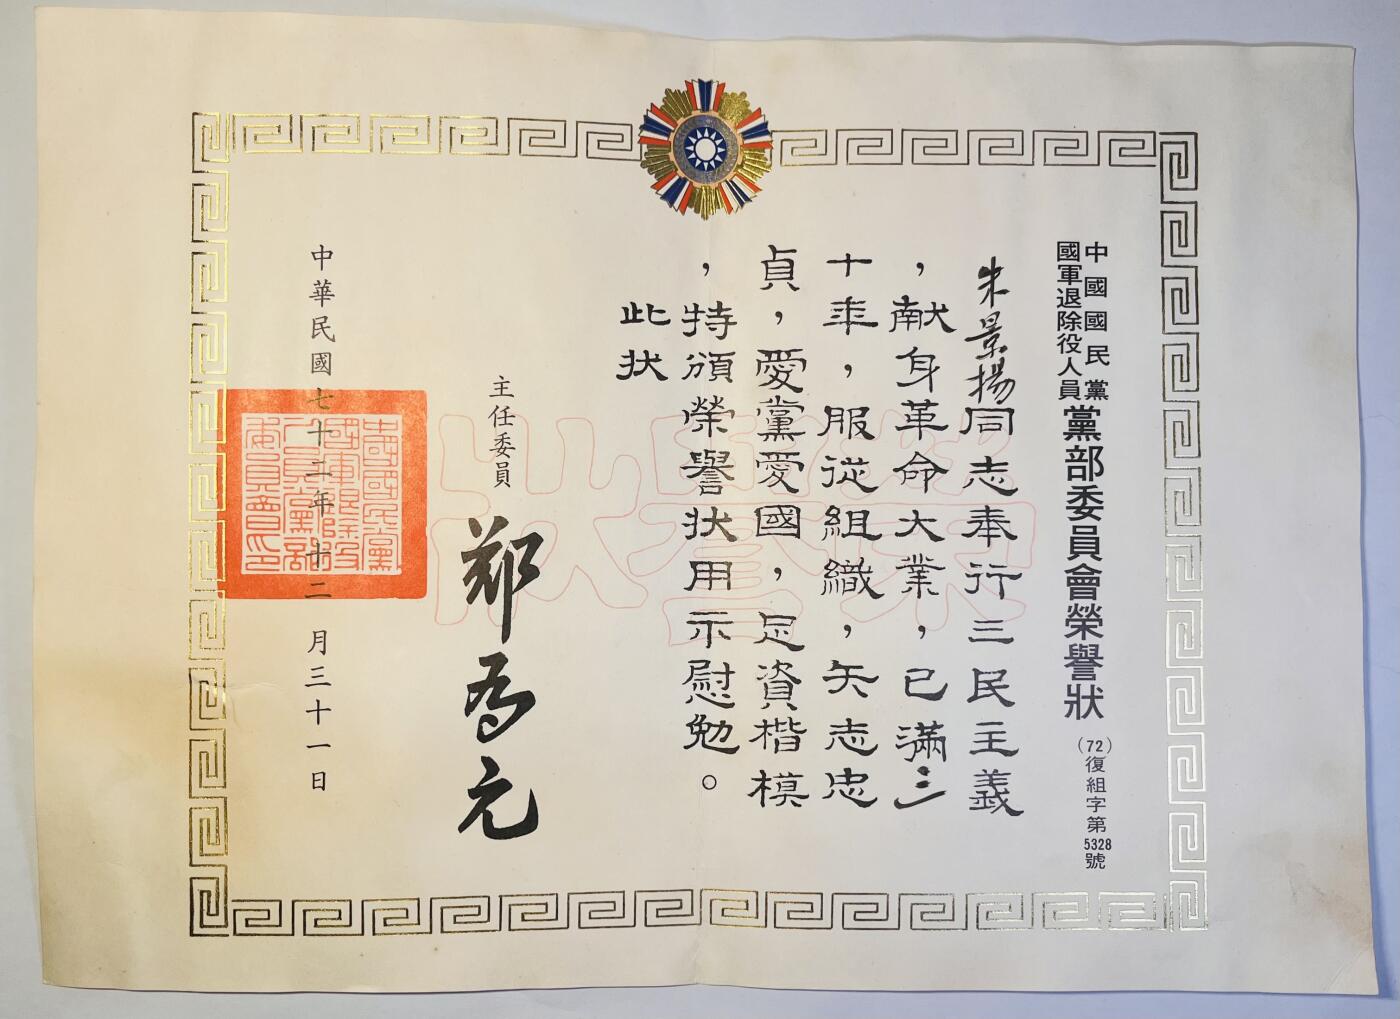 中國國民黨
國軍退除役人員
黨部委員會榮譽狀
(72)復組字第5328號
朱景揚同志奉行三民主義
，献身革命大業，已滿三
十年，服從組織，矢志忠
貞，愛黨愛國，足資楷模
，特頒榮譽狀用示慰勉。
此状
主任委員
鄭為元
中華民國七十二年十二月三十一日
榮譽狀